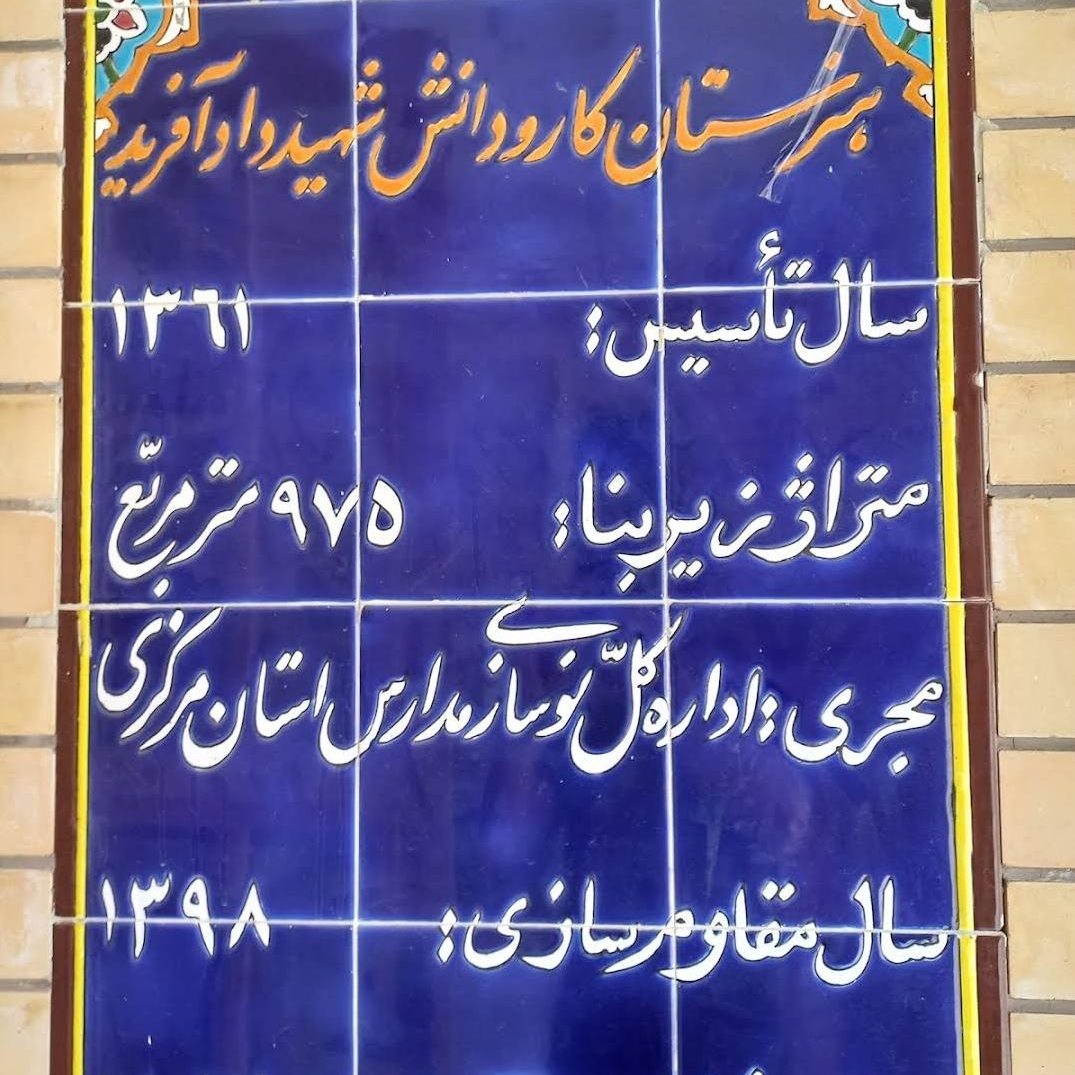 هنرستان کارودانش شهید دادآفرید
سال تأسیس: ۱۳۶۱
متراژ زیربنا: ۹۷۵ متر مربّع
مجری: اداره کلّ نوسازی مدارس استان مرکزی
سال مقاوم سازی: ۱۳۹۸